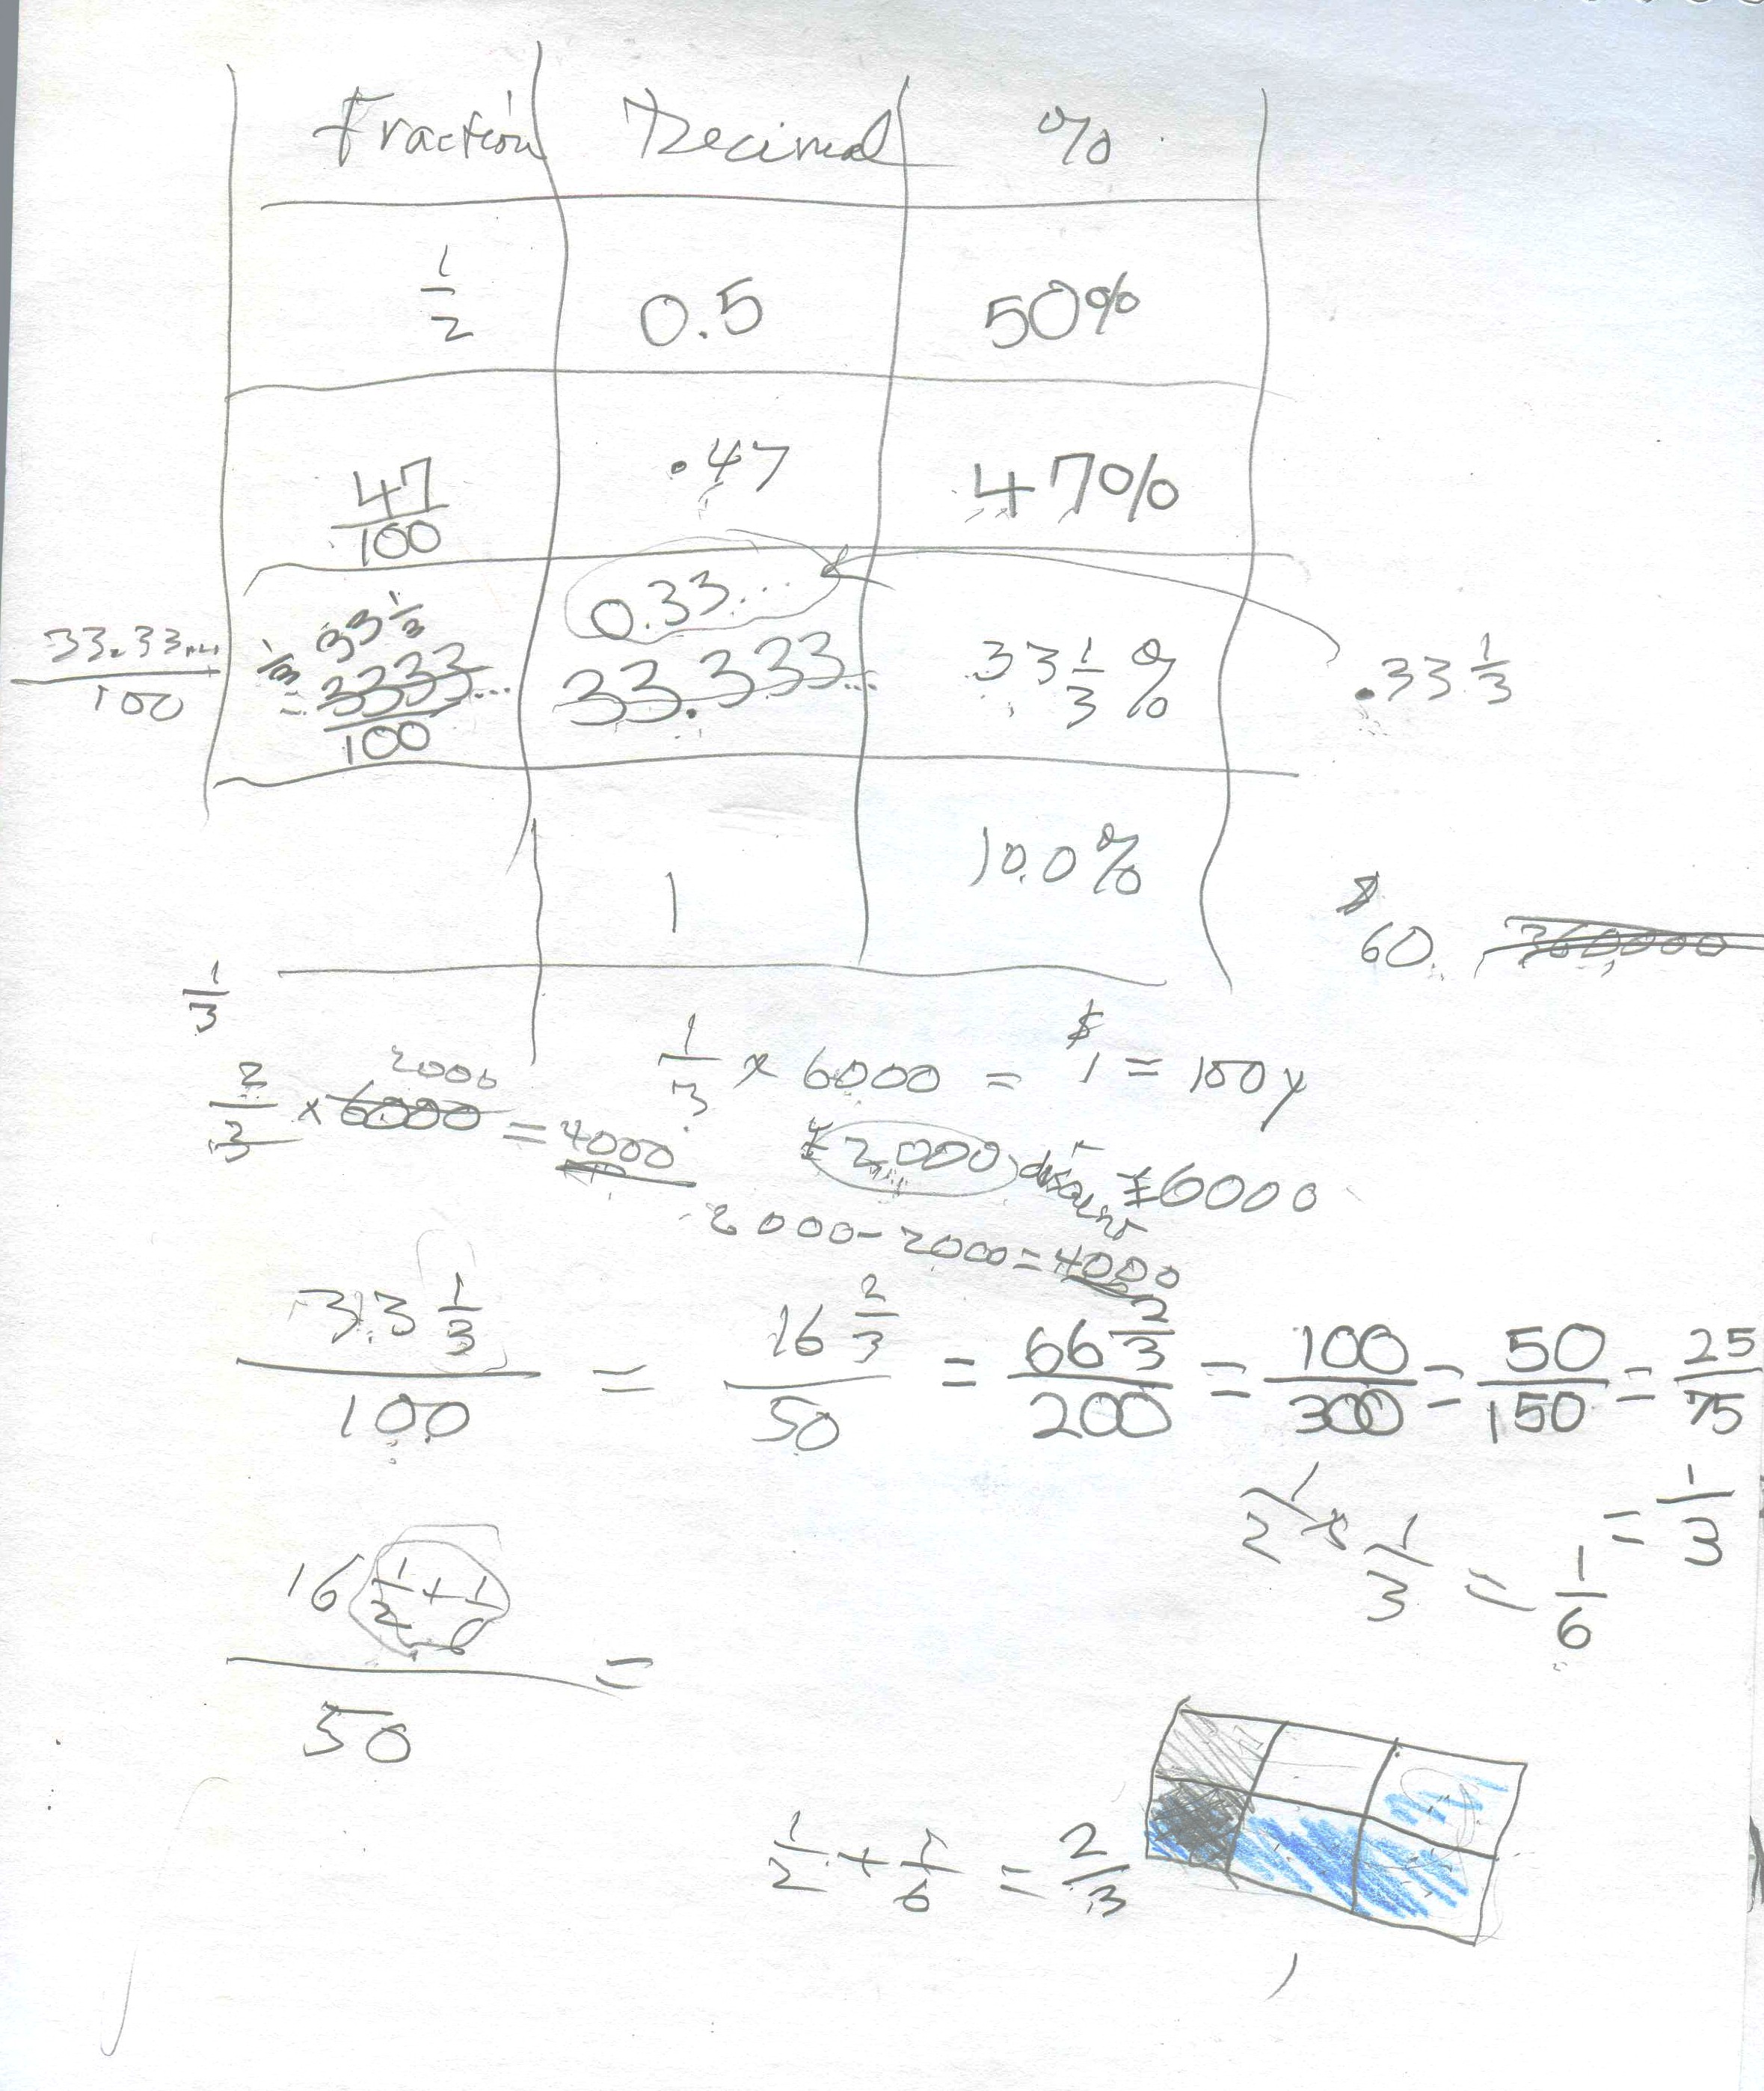 Fraction Decimal %
1/2 0.5 50%
47/100 .47 47%
0.33...
33.33.../100 1/3 = 33 1/3 3333.../100 33.333... 33 1/3 % .33 1/3
1 10.0%
$60. 360000
1/3
1/3 × 6000 = $1 = 100y
2/3 × 6000 2000 = 4000
¥2,000 discount ¥6000
2000 - 2000 = 4000
33 1/3 / 100 = 16 2/3 / 50 = 66 2/3 / 200 = 100/300 = 50/150 = 25/75
= 1/3
1/2 × 1/3 = 1/6
16 1/2 + 1/6 / 50 =
1/2 + 1/6 = 2/3